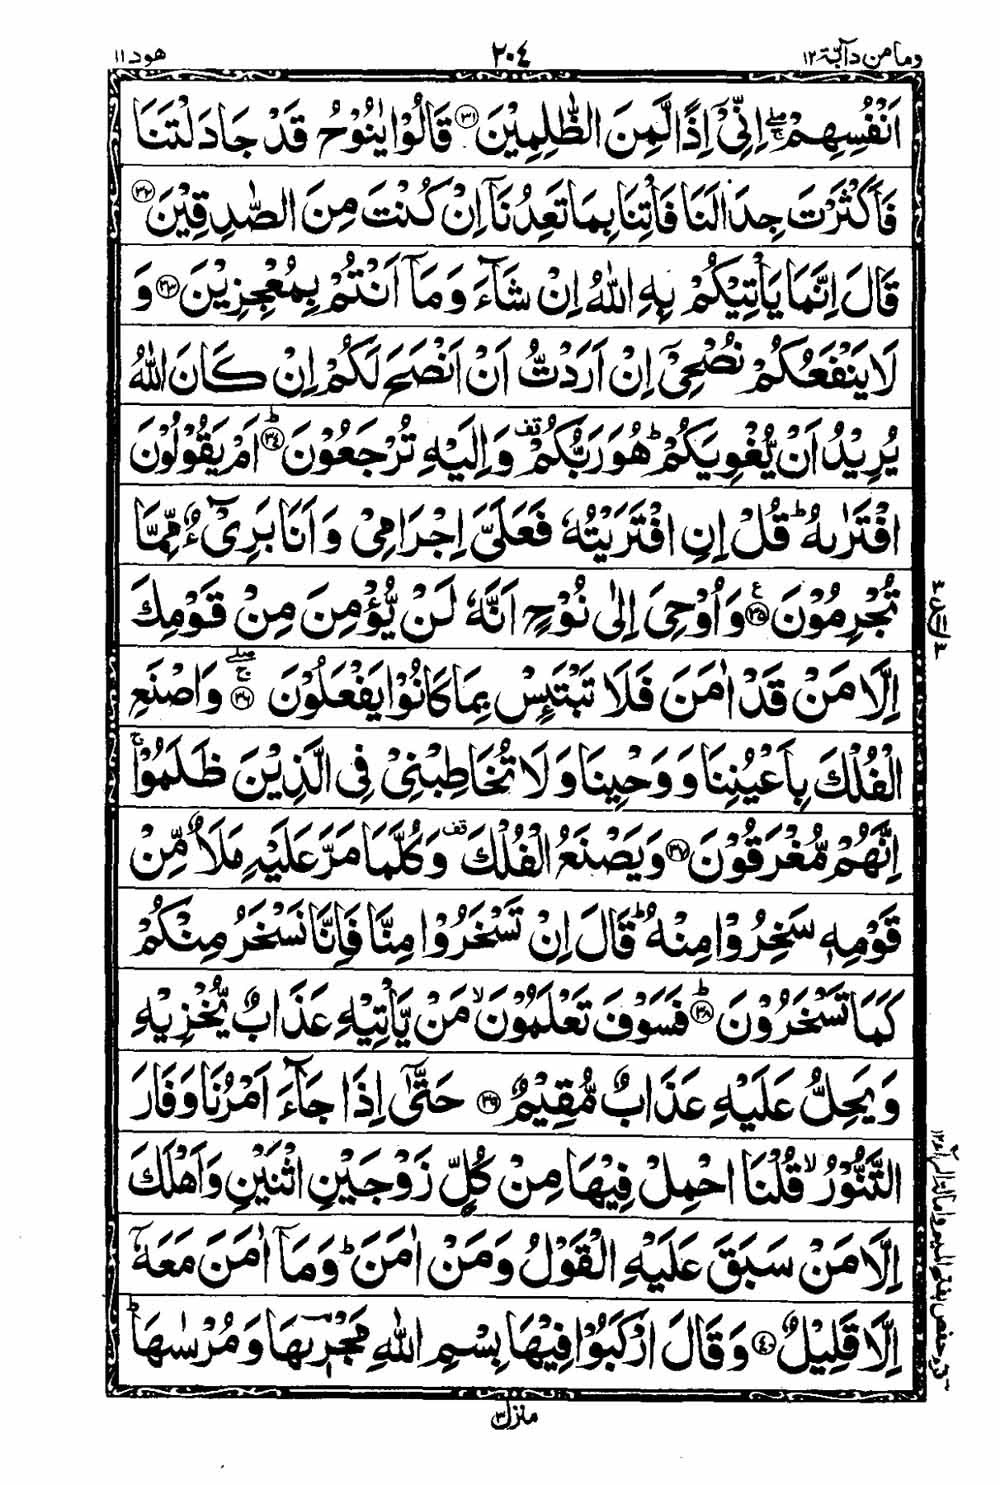 وما من دآبة ١٢
٢٠٤
هود ١١
اَنْفُسِهِمْ ۖۚ اِنِّىْٓ اِذًا لَّمِنَ الظّٰلِمِيْنَ ۝٣١ قَالُوْا يٰنُوْحُ قَدْ جَادَلْتَنَا
فَاَكْثَرْتَ جِدَالَنَا فَاْتِنَا بِمَا تَعِدُنَآ اِنْ كُنْتَ مِنَ الصّٰدِقِيْنَ ۝٣٢
قَالَ اِنَّمَا يَاْتِيْكُمْ بِهِ اللّٰهُ اِنْ شَآءَ وَمَآ اَنْتُمْ بِمُعْجِزِيْنَ ۝٣٣ وَ
لَا يَنْفَعُكُمْ نُصْحِىْٓ اِنْ اَرَدْتُّ اَنْ اَنْصَحَ لَكُمْ اِنْ كَانَ اللّٰهُ
يُرِيْدُ اَنْ يُّغْوِيَكُمْ ؕ هُوَ رَبُّكُمْ قف وَاِلَيْهِ تُرْجَعُوْنَ ؕ ۝٣٤ اَمْ يَقُوْلُوْنَ
افْتَرٰىهُ ؕ قُلْ اِنِ افْتَرَيْتُهٗ فَعَلَىَّ اِجْرَامِىْ وَاَنَا بَرِىْٓءٌ مِّمَّا
تُجْرِمُوْنَ ۝٣٥ ع وَاُوْحِىَ اِلٰى نُوْحٍ اَنَّهٗ لَنْ يُّؤْمِنَ مِنْ قَوْمِكَ
اِلَّا مَنْ قَدْ اٰمَنَ فَلَا تَبْتَئِسْ بِمَا كَانُوْا يَفْعَلُوْنَ ۝٣٦ ۖۚ وَاصْنَعِ
الْفُلْكَ بِاَعْيُنِنَا وَوَحْيِنَا وَلَا تُخَاطِبْنِىْ فِى الَّذِيْنَ ظَلَمُوْا ۚ
اِنَّهُمْ مُّغْرَقُوْنَ ۝٣٧ وَيَصْنَعُ الْفُلْكَ قف وَكُلَّمَا مَرَّ عَلَيْهِ مَلَاٌ مِّنْ
قَوْمِهٖ سَخِرُوْا مِنْهُ ؕ قَالَ اِنْ تَسْخَرُوْا مِنَّا فَاِنَّا نَسْخَرُ مِنْكُمْ
كَمَا تَسْخَرُوْنَ ؕ ۝٣٨ فَسَوْفَ تَعْلَمُوْنَ ۙ مَنْ يَّاْتِيْهِ عَذَابٌ يُّخْزِيْهِ
وَيَحِلُّ عَلَيْهِ عَذَابٌ مُّقِيْمٌ ۝٣٩ حَتّٰٓى اِذَا جَآءَ اَمْرُنَا وَفَارَ
التَّنُّوْرُ ۙ قُلْنَا احْمِلْ فِيْهَا مِنْ كُلٍّ زَوْجَيْنِ اثْنَيْنِ وَاَهْلَكَ
اِلَّا مَنْ سَبَقَ عَلَيْهِ الْقَوْلُ وَمَنْ اٰمَنَ ؕ وَمَآ اٰمَنَ مَعَهٗٓ
اِلَّا قَلِيْلٌ ۝٤٠ وَقَالَ ارْكَبُوْا فِيْهَا بِسْمِ اللّٰهِ مَجْرٖىهَا وَمُرْسٰىهَا ؕ
منزل ٣